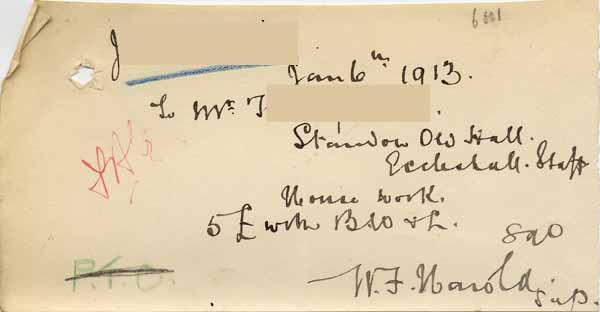 J
Jan 6th 1913.
To Mr. F
Standon Old Hall.
Eccleshall. Staff
House work.
5£ with B W & L.
P.T.O.
W. F. Harold
Sup.